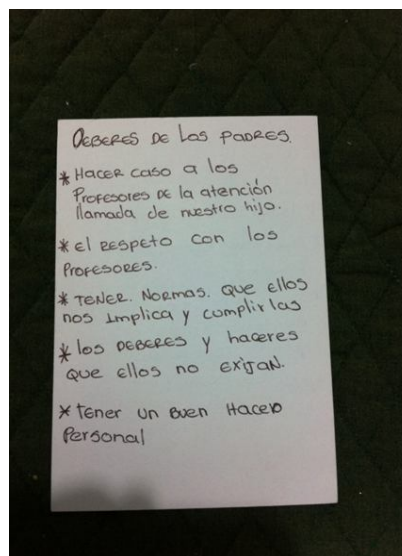 DEBERES DE Los PADRES.
* HACER CASO a los
Profesores De la atención
llamada de nuestro hijo.
* el RESPETO CON los
PROFESORES.
* TENER. NORMAS. QUE ellos
nos implica y cumplir las
* los DEBERES y haceres
QUE ellos no EXIJAN.
* tener un Buen Hacer
Personal